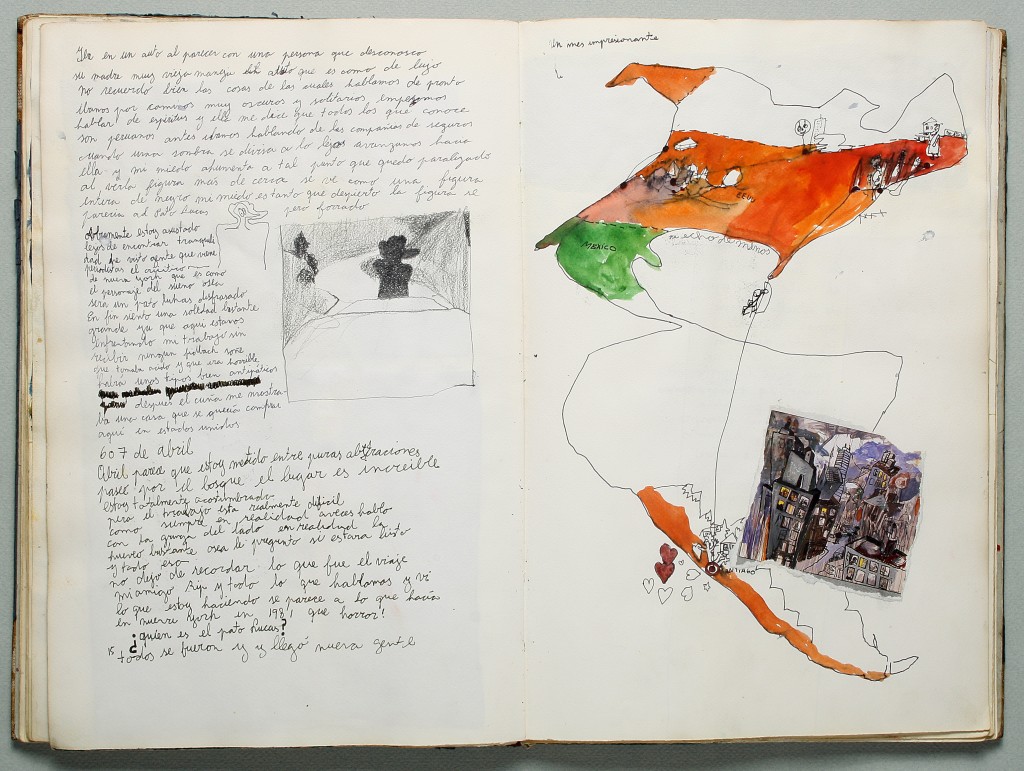 en un auto al parecer con una persona que desconosco
su madre muy vieja maneja auto que es como de lujo
no recuerdo bien las cosas de las cuales hablamos de pronto
ibamos por caminos muy oscuros y solitarios empesamos
hablar de espiritus y ella me dice que todos los que conoce
son peruanos antes ibamos hablando de las compañias de seguros
cuando una sombra se divisa a lo lejos avanzamos hacia
ella y mi miedo ahumenta a tal punto que quedo paralizado
al verla figura mas de cerca se ve como una figura
entera de negro mi miedo es tanto que despierto la figura se
parecia al pato lucas pero forrado
estoy asustado
lejos de encontrar tranquili
dad he visto gente que viene
periodistas el
de nueva york que es como
el personaje del sueño osea
sería un pato lukas disfrasado
En fin siento una soledad bastante
grande ya que aqui estamos
enfrentando mi trabajo sin
recibir ningun soñe
que tomaba acido y que era horrible
habia unos tipos bien antipáticos
despues el me mostra-
ba una casa que se queria comprar
aquí en estados unidos
6 o 7 de abril
Abril parece que estoy metido entre puras abstraciones
pasee por el bosque el lugar es increible
estoy totalmente acostumbrado
pero el trabajo esta realmente dificil
como siempre en realidad aveces hablo
con la gringa del lado en realidad la
hueveo bastante osea le pregunto si estara listo
y todo eso
no dejo de recordar lo que fue el viaje
mi amigo y todo lo que hablamos y vi
lo que estoy haciendo se parece a lo que hacía
en nueva York en 1981 que horror!
¿quien es el pato lucas?
todos se fueron y y llegó nueva gente
Un mes impresionante
EEUU
MEXICO
te echo de menos
SANTIAGO